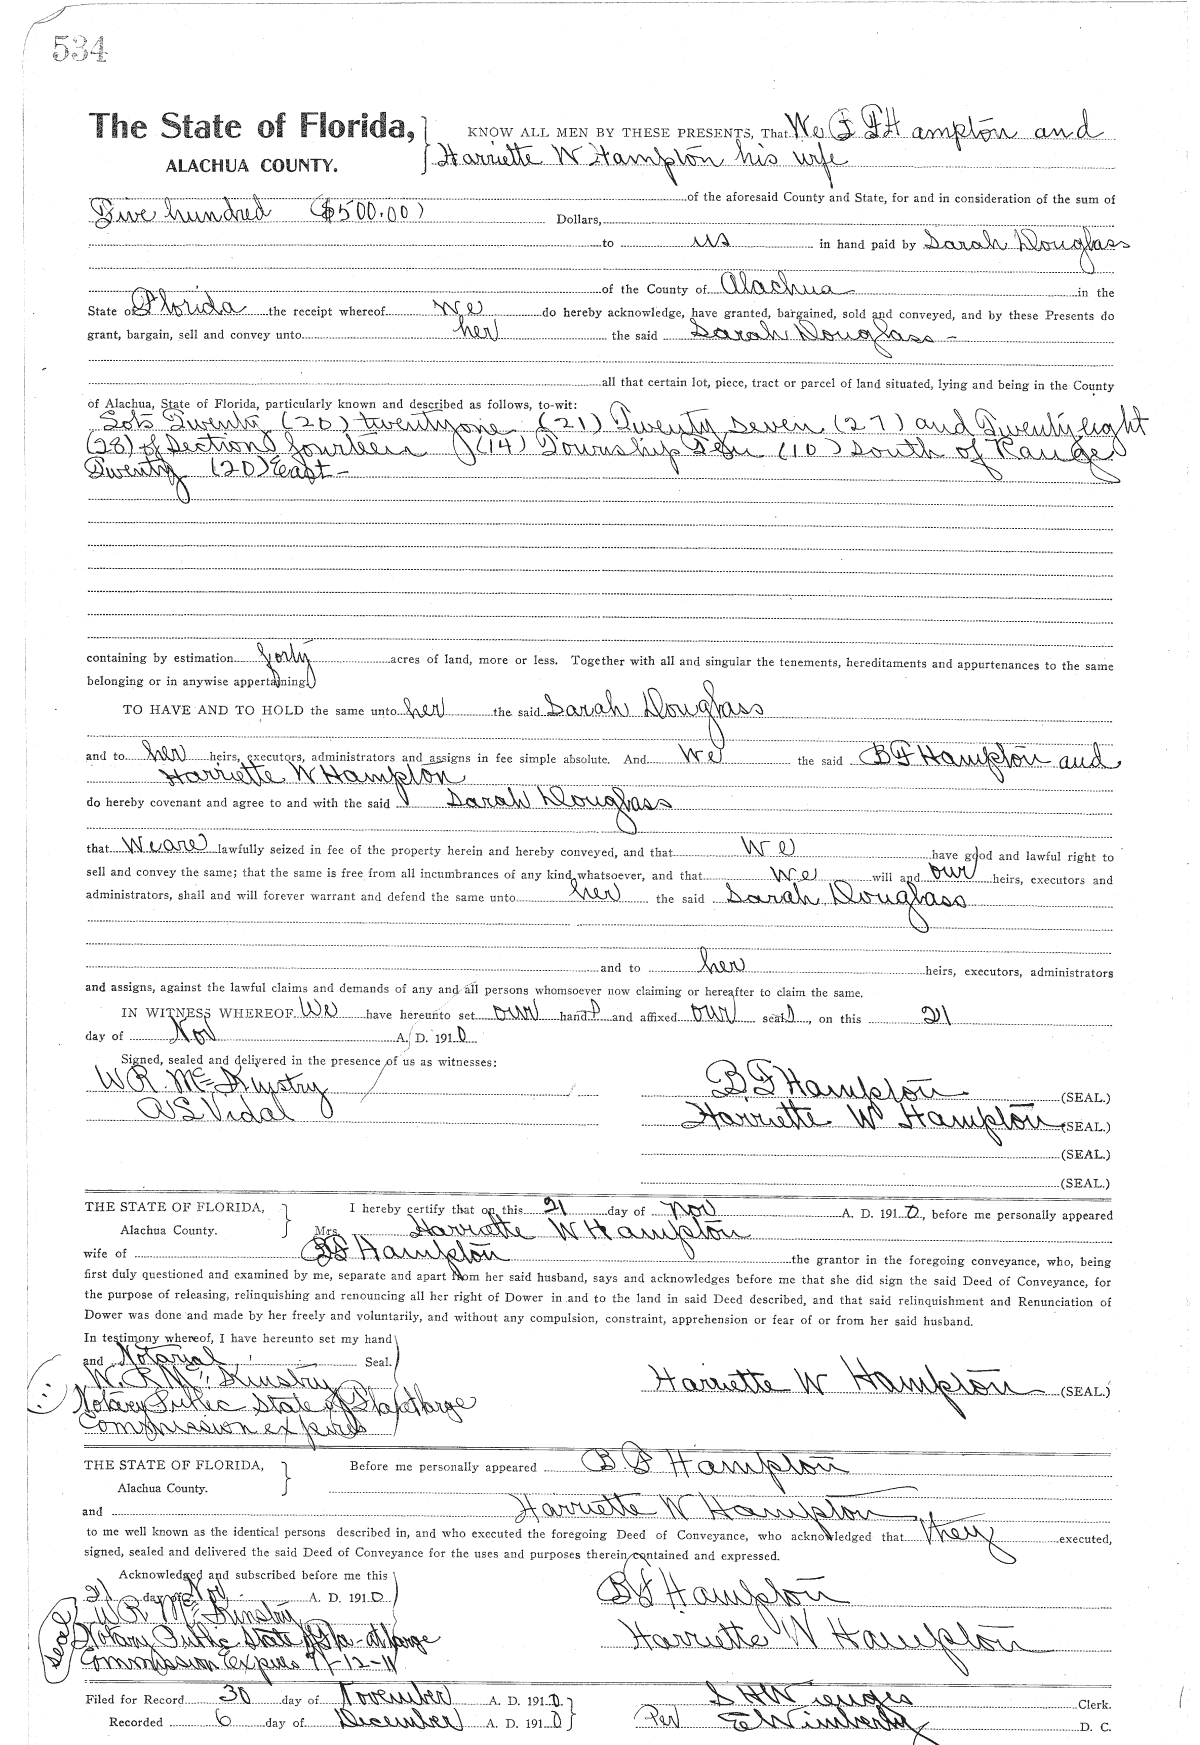 534
The State of Florida, KNOW ALL MEN BY THESE PRESENTS, That We B F Hampton and
ALACHUA COUNTY. Harriette W Hampton his wife
of the aforesaid County and State, for and in consideration of the sum of
Five hundred ($500.00) Dollars,
to us in hand paid by Sarah Douglass
of the County of Alachua in the
State of Florida the receipt whereof We do hereby acknowledge, have granted, bargained, sold and conveyed, and by these Presents do
grant, bargain, sell and convey unto her the said Sarah Douglass -
all that certain lot, piece, tract or parcel of land situated, lying and being in the County
of Alachua, State of Florida, particularly known and described as follows, to-wit:
Lots Twenty (20) twentyone (21) Twenty seven (27) and Twenty eight
(28) of Section fourteen (14) Township Ten (10) South of Range
Twenty (20) East -
containing by estimation forty acres of land, more or less. Together with all and singular the tenements, hereditaments and appurtenances to the same
belonging or in anywise appertaining.
TO HAVE AND TO HOLD the same unto her the said Sarah Douglass
and to her heirs, executors, administrators and assigns in fee simple absolute. And We the said B F Hampton and
Harriette W Hampton
do hereby covenant and agree to and with the said Sarah Douglass
that We are lawfully seized in fee of the property herein and hereby conveyed, and that We have good and lawful right to
sell and convey the same; that the same is free from all incumbrances of any kind whatsoever, and that We will and our heirs, executors and
administrators, shall and will forever warrant and defend the same unto her the said Sarah Douglass
and to her heirs, executors, administrators
and assigns, against the lawful claims and demands of any and all persons whomsoever now claiming or hereafter to claim the same.
IN WITNESS WHEREOF We have hereunto set our hands and affixed our seals, on this 21
day of Nov A. D. 1910
Signed, sealed and delivered in the presence of us as witnesses:
W R McKinstry B F Hampton (SEAL.)
A S Vidal Harriette W Hampton (SEAL.)
(SEAL.)
(SEAL.)
THE STATE OF FLORIDA, I hereby certify that on this 21 day of Nov A. D. 1910, before me personally appeared
Alachua County. Mrs. Harriette W Hampton
wife of B F Hampton the grantor in the foregoing conveyance, who, being
first duly questioned and examined by me, separate and apart from her said husband, says and acknowledges before me that she did sign the said Deed of Conveyance, for
the purpose of releasing, relinquishing and renouncing all her right of Dower in and to the land in said Deed described, and that said relinquishment and Renunciation of
Dower was done and made by her freely and voluntarily, and without any compulsion, constraint, apprehension or fear of or from her said husband.
In testimony whereof, I have hereunto set my hand
and Notarial Seal.
W. R Mc Kinstry Harriette W Hampton (SEAL.)
Notary Public State of Fla at large
Commission expires
THE STATE OF FLORIDA, Before me personally appeared B F Hampton
Alachua County.
and Harriette W Hampton
to me well known as the identical persons described in, and who executed the foregoing Deed of Conveyance, who acknowledged that they executed,
signed, sealed and delivered the said Deed of Conveyance for the uses and purposes therein contained and expressed.
Acknowledged and subscribed before me this
21 day of Nov A. D. 1910 B F Hampton
W R McKinstry
seal Notary Public State of Fla - at large Harriette W Hampton
Commission Expires 
Filed for Record 30 day of November A. D. 1910 S H Wienges Clerk.
Recorded 6 day of December A. D. 1910 Per E Wimberly D. C.